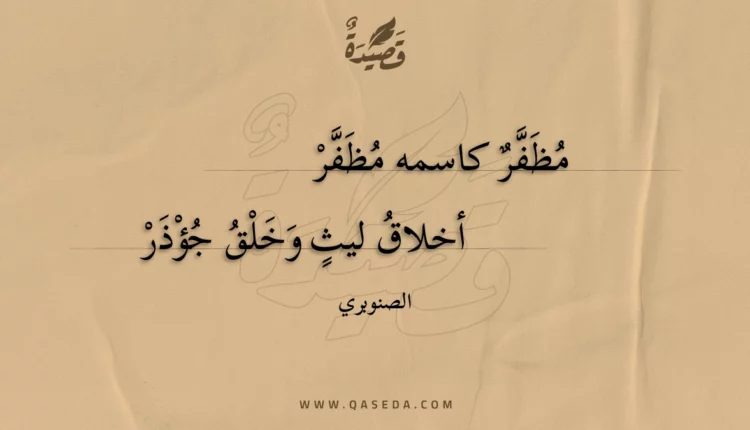 قَصِيدَةٌ
مُظَفَّرٌ كاسمه مُظَفَّرْ
أخلاقُ ليثٍ وَخَلْقُ جُؤْذَرْ
الصنوبري
WWW.QASEDA.COM